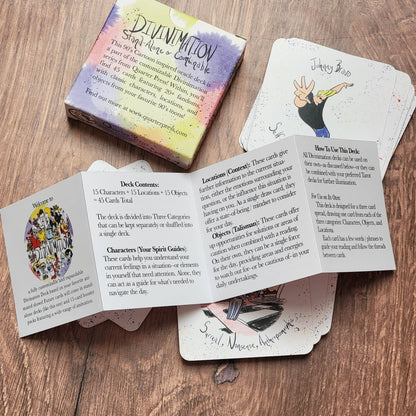 DIVINIMATION
Stand-Alone or Combinable
This 90's Cartoon inspired oracle deck is
a part of the customizable Divinimation
series from Quarter Press! Within, you'll
find 45 cards featuring 20+ fandoms
with classic characters, locations, and
objects from your favorite 90's shows!
Find out more at www.
quarterpress.com
Johnny Bravo
Welcome to
DIVINIMATION
a fully customizable and expandable
Divination Deck based on your favorite animation
stand-alone decks (like this one) and 15-card booster
packs featuring a wide range of animation.
Deck Contents:
15 Characters + 15 Locations + 15 Objects
= 45 Cards Total
The deck is divided into Three Categories
that can be kept separately or shuffled into
single deck.
Characters (Your Spirit Guides):
These cards help you understand your
current feelings in a situation–or elements
in yourself that need attention. Alone, they
can act as a guide for what's needed to
navigate the day.
Locations (Context): These cards give
further information to the current situation,
either the emotions surrounding your
question, or the influence this situation is
having on you. As a single draw card, they
offer a state-of-being / mindset to consider
for day.
Objects (Talismans): These cards offer
up opportunities for solutions or areas of
caution when combined with a reading.
On their own, they can be a single force
for the day, providing areas and energies
to watch out for–or be cautious of–in your
daily undertakings.
How To Use This Deck:
All Divinimation decks can be used on
their own–as discussed below–or they can
be combined with your preferred Tarot
deck for further illumination.
For Use On Its Own:
This deck is designed for a three card
spread, drawing one card from each of the
three categories: Characters, Objects, and
Locations.
Each card has a few words / phrases to
guide your reading and follow the threads
between cards.
Surreal, Nonsense, Anthropomorphic